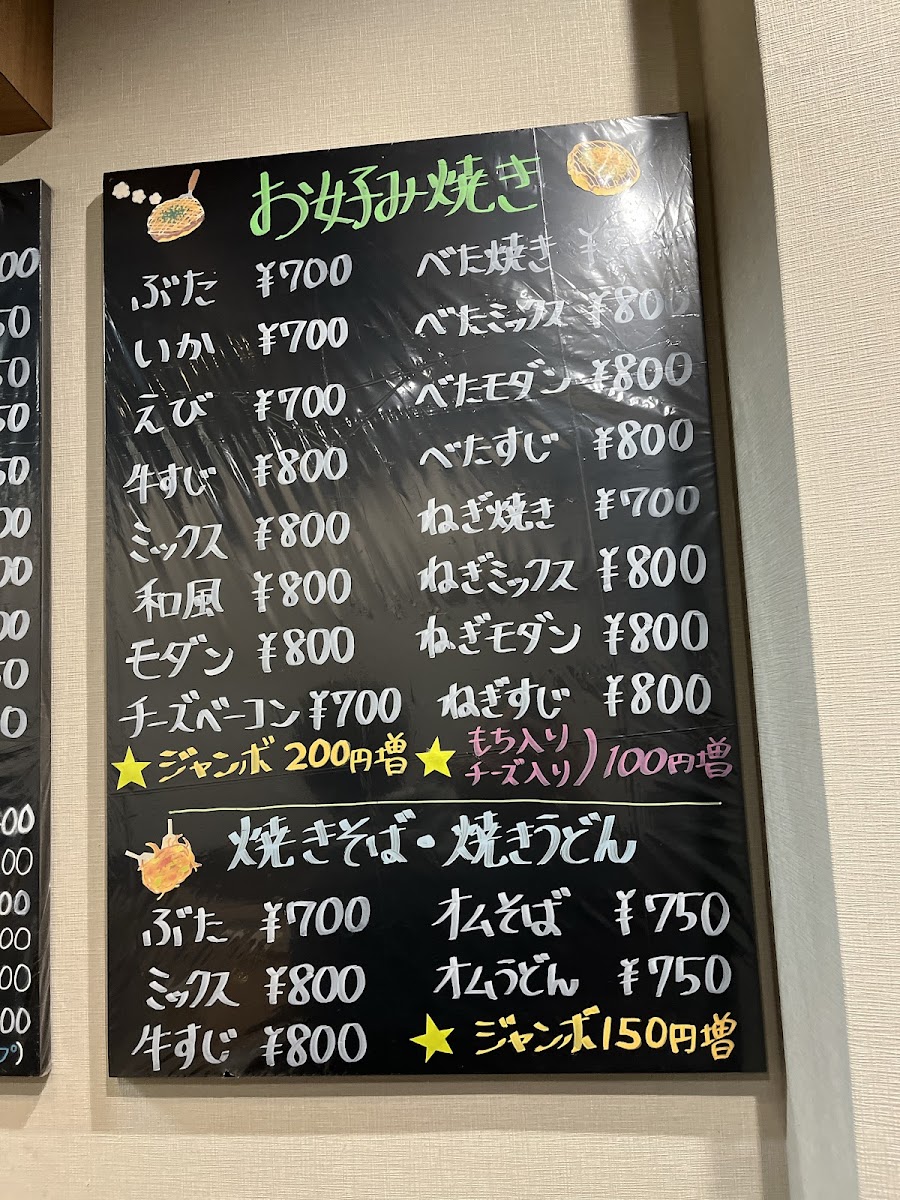 お好み焼き
ぶた ¥700
いか ¥700
えび ¥700
牛すじ ¥800
ミックス ¥800
和風 ¥800
モダン ¥800
チーズベーコン ¥700
★ジャンボ 200円増
べた焼き ¥
べたミックス ¥800
べたモダン ¥800
べたすじ ¥800
ねぎ焼き ¥700
ねぎミックス ¥800
ねぎモダン ¥800
ねぎすじ ¥800
★もち入り
チーズ入り)100円増
焼きそば・焼きうどん
ぶた ¥700
ミックス ¥800
牛すじ ¥800
オムそば ¥750
オムうどん ¥750
★ジャンボ150円増